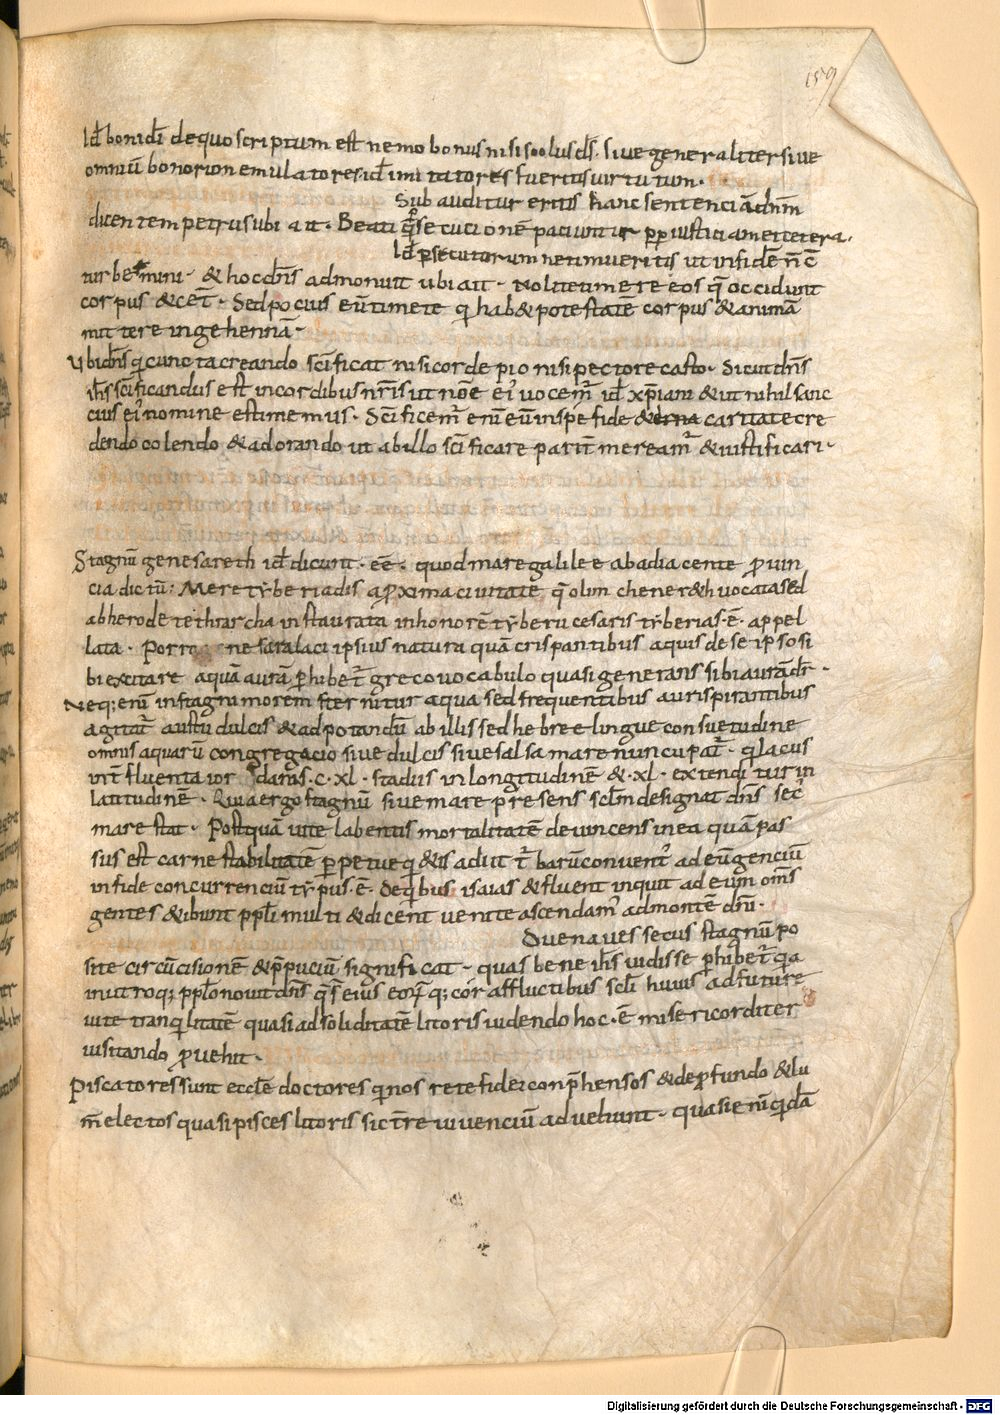 159
Id÷ boni dī de quo scriptum est nemo bonus nisi solus ds̄. sive generaliter sive
omniū bonorum emulatores id÷ imitatores fueritis virtutum.
Sub auditur eritis hanc sentenciā dn̄m
dicentem petrus ubi ait. Beati q̄ persecucionē paciuntur pp̄ iusticiam et cetera.
Id÷ persecutorum ne timueritis ut in fidē n̄ c̄
turbemini. & hoc dn̄s admonuit ubi ait. Nolite timere eos q̄ occidunt
corpus & cet̄. Sed pocius eū timete qi hab& potestatē corpus & animā
mittere in gehennā.
Ubi dn̄s qi cuncta creando scīficat nisi corde pio nisi pectore casto. Sicut dn̄s
ih̄s scīficandus est in cordibus nr̄is ut nōe ei' vocem̄ id÷ xp̄iani & ut nihil sanc
cius ei' nomine estimemus. Scīficem̄ enī eū in spe fide & caritate cre
dendo colendo & adorando ut ab illo scīficare parit̄ mereamr̄ & iustificari.
Stagnū genesareth id÷ dicunt. eē. quod mare galilee ab adiacente provin
cia dictū: Mere tyberiadis a proxima civitate q̄ olim chener&h vocata sed
ab herode tethrarcha instaurata in honorē tyberii cesaris tyberias. ē. appel
lata. Porro nesar a laci ipsius natura quā crispantibus aquis de se ipso si
bi excitare aquā aurā perhibet̄ greco vocabulo quasi generans sibi aurā dr̄.
Neq; enī in stagni morem sternitur aqua sed frequentibus auris spirantibus
agitat̄ austu dulcis & ad potandū ab illis sed hebree lingue consuetudine
omnis aquarū congregacio sive dulcis sive salsa mare nuncupat̄. qi lacus
int̄fluente ior danis. c. xl. stadiis in longitudinē & xl. extenditur in
latitudinē. Quia ergo stagnū sive mare presens sclm̄ designat dn̄s sec'
mare stat. Postquā vite labentis mortalitatē devincens in ea quā pas
sus est carne stabilitatē perpetue qi&is adiit t̄barū convent' ad eū genciū
in fide concurrenciū typus. ē. De qibus isaias & fluent inquit ad eum om̄s
gentes & ibunt ppl̄i multi & dicent venite ascendam' ad montē dn̄i.
Due naves secus stagnū po
site circūcisionē & p̄puciū significat. quas bene ih̄s vidisse perhibet̄ qia
in utroq; ppl̄o novit dn̄s qi s̄ eius eorū q; cor a ffluctibus scl̄i huius ad future
vite tranqilitatē quasi ad soliditatē litoris videndo hoc. ē misericorditer
visitando provehit.
Piscatores sunt eccl̄e doctores qi nos rete fidei conp̄hensos & de profundo & lu
m̄ electos quasi pisces litoris sic t̄re vivenciū advehunt. quasi enī qidā
Digitalisierung gefördert durch die Deutsche Forschungsgemeinschaft - DFG